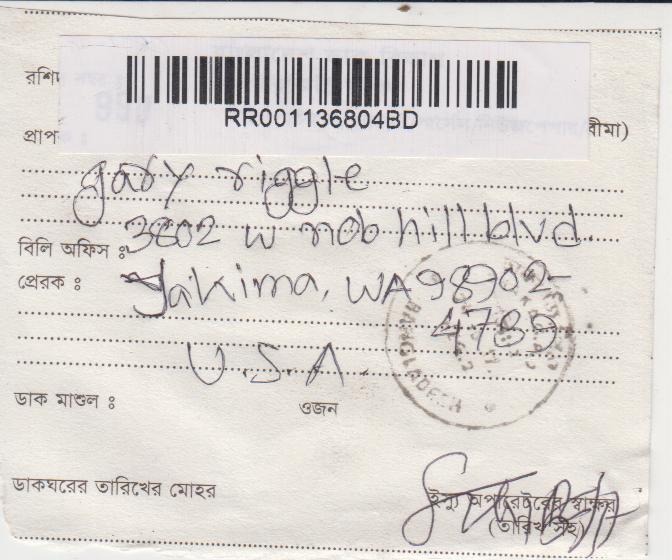 রশি
RR001136804BD
প্রাপ
বীমা)
gary riggle
3802 w nob hill blvd
বিলি অফিস :
প্রেরক :
Yakima, WA 98902-
4785
U.S.A.
BANGLADESH
ডাক মাশুল :
ওজন
ডাকঘরের তারিখের মোহর
ইস্যু অপারেটরের স্বাক্ষর
(তারিখ সহ)